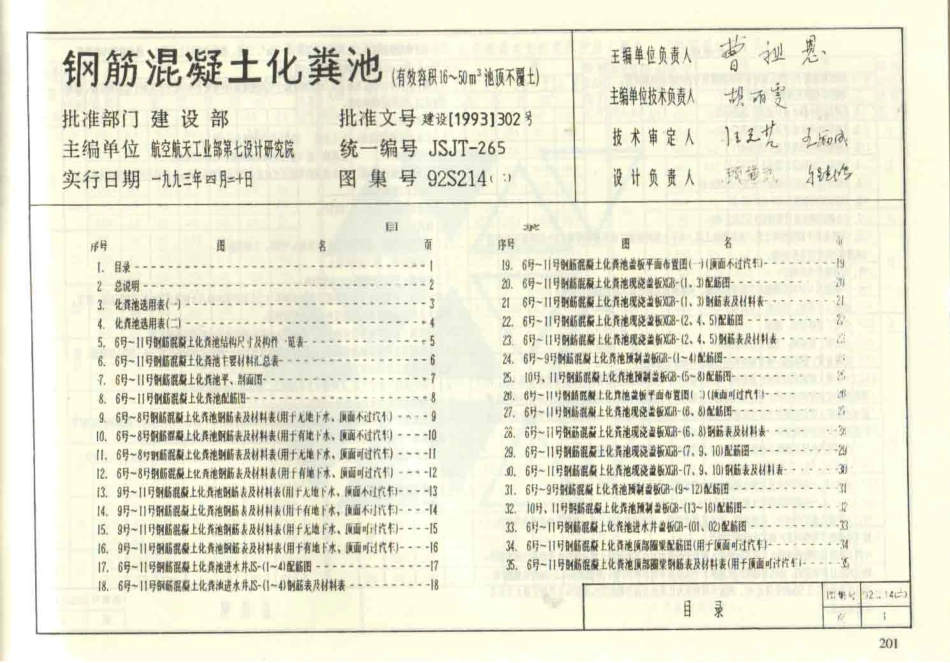 钢筋混凝土化粪池(有效容积16~50m³池顶不覆土)
批准部门 建设部
批准文号 建设[1993]302号
主编单位 航空航天工业部第七设计研究院
统一编号 JSJT-265
实行日期 一九九三年四月二十日
图集号 92S214
主编单位负责人
主编单位技术负责人
技术审定人
设计负责人
目 录
序号 图 名 页
1. 目录 1
2 总说明 2
3. 化粪池选用表(一) 3
4. 化粪池选用表(二) 4
5. 6号~11号钢筋混凝土化粪池结构尺寸及构件一览表 5
6. 6号~11号钢筋混凝土化粪池主要材料汇总表 6
7. 6号~11号钢筋混凝土化粪池平、剖面图 7
8. 6号~11号钢筋混凝土化粪池配筋图 8
9 6号~8号钢筋混凝土化粪池钢筋表及材料表(用于无地下水、顶面不过汽车) 9
10. 6号~8号钢筋混凝土化粪池钢筋表及材料表(用于有地下水、顶面不过汽车) 10
11. 6号~8号钢筋混凝土化粪池钢筋表及材料表(用于无地下水、顶面可过汽车) 11
12. 6号~8号钢筋混凝土化粪池钢筋表及材料表(用于有地下水、顶面可过汽车) 12
13. 9号~11号钢筋混凝土化粪池钢筋表及材料表(用于无地下水、顶面不过汽车) 13
14. 9号~11号钢筋混凝土化粪池钢筋表及材料表(用于有地下水、顶面不过汽车) 14
15. 9号~11号钢筋混凝土化粪池钢筋表及材料表(用于无地下水、顶面可过汽车) 15
16. 9号~11号钢筋混凝土化粪池钢筋表及材料表(用于有地下水、顶面可过汽车) 16
17. 6号~11号钢筋混凝土化粪池进水井JS-(1~4)配筋图 17
18. 6号~11号钢筋混凝土化粪池进水井JS-(1~4)钢筋表及材料表 18
序号 图 名
19. 6号~11号钢筋混凝土化粪池盖板平面布置图(一)(顶面不过汽车) 19
20. 6号~11号钢筋混凝土化粪池现浇盖板XGB-(1、3)配筋图 20
21 6号~11号钢筋混凝土化粪池现浇盖板XGB-(1、3)钢筋表及材料表 21
22. 6号~11号钢筋混凝土化粪池现浇盖板XGB-(2、4、5)配筋图 22
23. 6号~11号钢筋混凝土化粪池现浇盖板XGB-(2、4、5)钢筋表及材料表 23
24. 6号~9号钢筋混凝土化粪池预制盖板GB-(1~4)配筋图
25. 10号、11号钢筋混凝土化粪池预制盖板GB-(5~8)配筋图 25
26. 6号~11号钢筋混凝土化粪池盖板平面布置图(二)(顶面可过汽车) 26
27. 6号~11号钢筋混凝土化粪池现浇盖板XGB-(6、8)配筋图
28. 6号~11号钢筋混凝土化粪池现浇盖板XGB-(6、8)钢筋表及材料表
29. 6号~11号钢筋混凝土化粪池现浇盖板XGB-(7、9、10)配筋图 29
30. 6号~11号钢筋混凝土化粪池现浇盖板XGB-(7、9、10)钢筋表及材料表 30
31. 6号~9号钢筋混凝土化粪池预制盖板GB-(9~12)配筋图 31
32. 10号、11号钢筋混凝土化粪池预制盖板GB-(13~16)配筋图 32
33. 6号~11号钢筋混凝土化粪池进水井盖板GB-(01、02)配筋图 33
34. 6号~11号钢筋混凝土化粪池顶部圈梁配筋图(用于顶面可过汽车) 34
35. 6号~11号钢筋混凝土化粪池顶部圈梁钢筋表及材料表(用于顶面可过汽车) 35
目 录
图集号
页 1
201